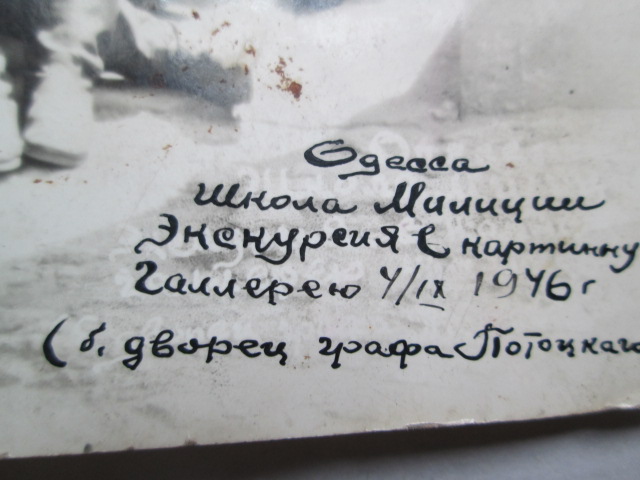 Одесса
Школа Милиции
Экскурсия в картинну
Галлерею 4/IX 1946 г
( б. дворец графа Потоцкаго